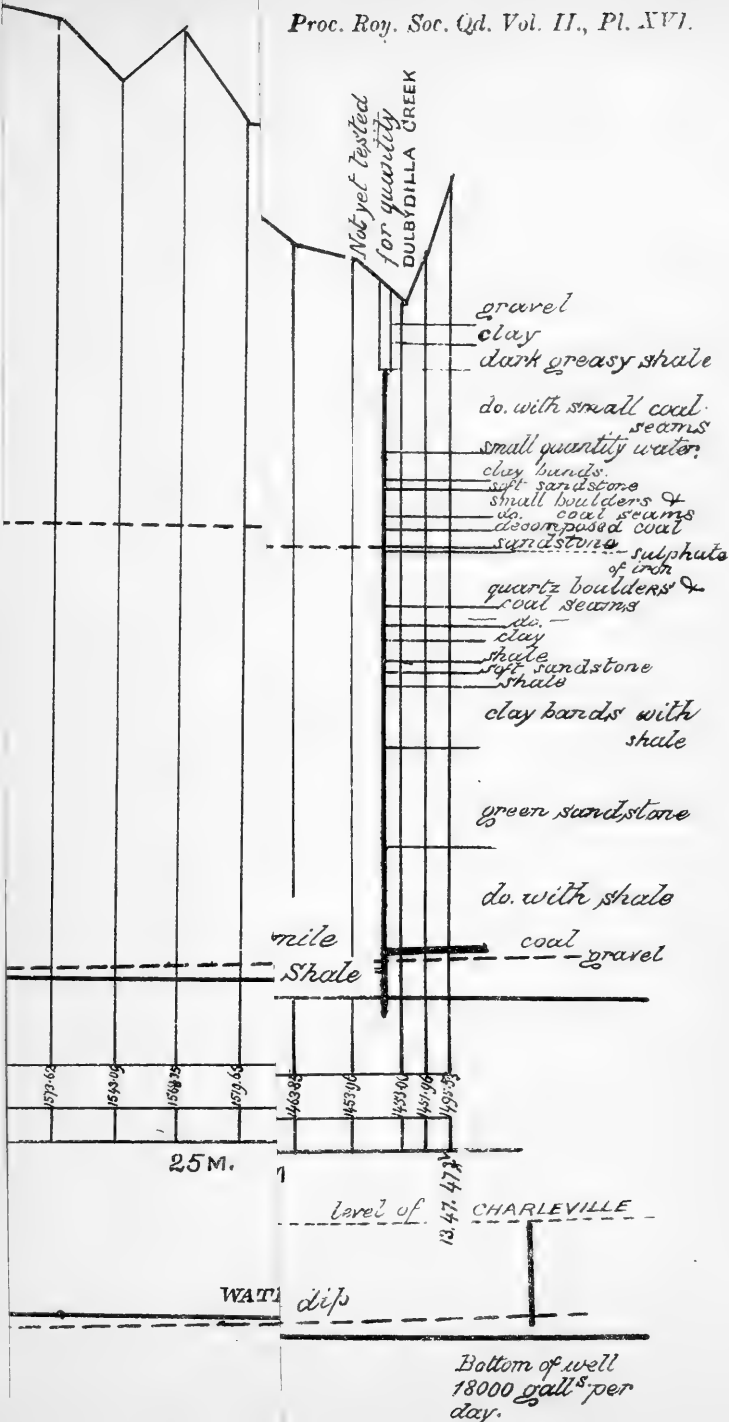 Proc. Roy. Soc. Qd. Vol. II., Pl. XVI.
Not yet tested
for quantity
DULBYDILLA CREEK
gravel
clay
dark greasy shale
do. with small coal
seams
small quantity water.
clay bands.
soft sandstone
small boulders &
do. coal seams
decomposed coal
sandstone
sulphate
of iron
quartz boulders &
coal seams
— do. —
clay
shale
soft sandstone
shale
clay bands with
shale
green sandstone
do. with shale
coal
gravel
mile
Shale
1573.62
1463.85
1453.96
1453.00
1451.96
1495.53
25 M.
level of CHARLEVILLE
WAT
dip
Bottom of well
18000 galls per
day.